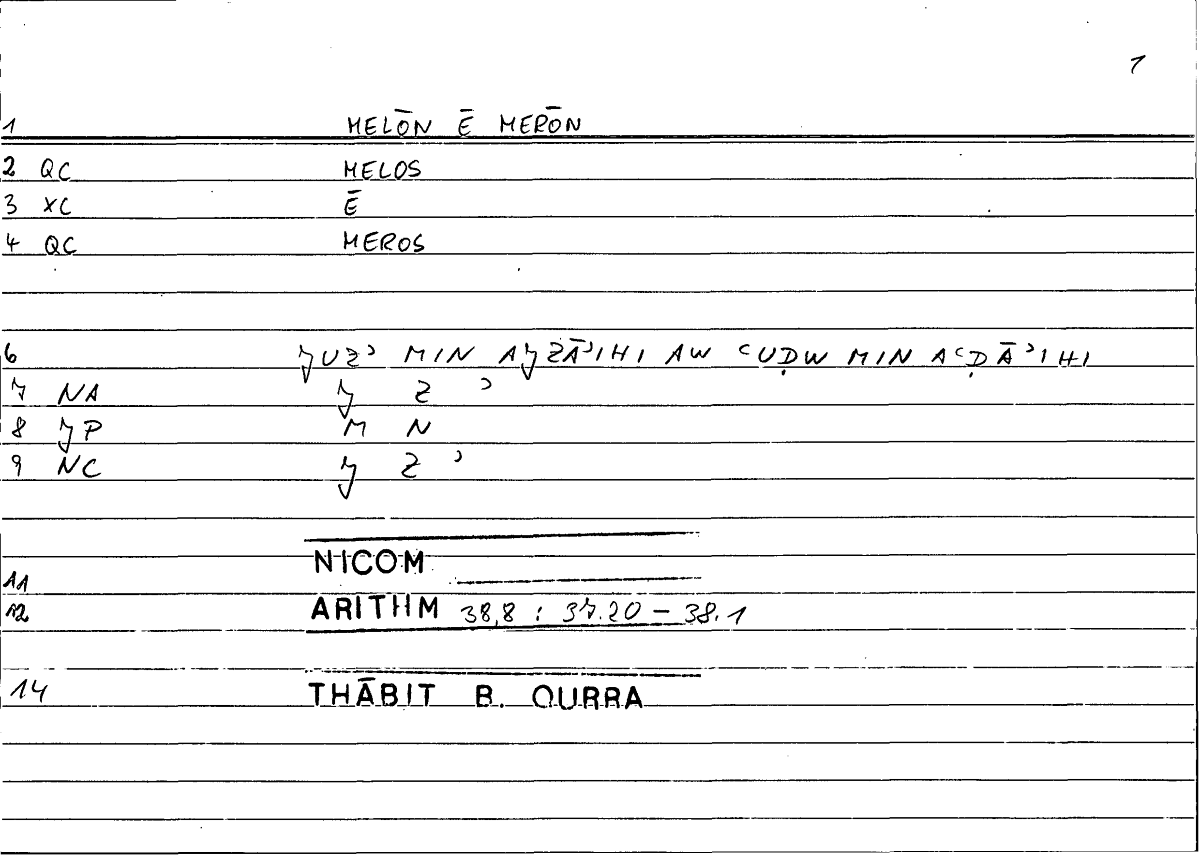 1
1 MELŌN Ē MERŌN
2 QC MELOS
3 XC Ē
4 QC MEROS
6 ȷUZʾ MIN AȷZĀʾIHI AW ʿUḌW MIN AʿḌĀʾIHI
7 NA ȷ Z ʾ
8 ȷP M N
9 NC ȷ Z ʾ
NICOM
11
12 ARITHM 38,8 : 37.20 – 38.1
14 THĀBIT B. QURRA